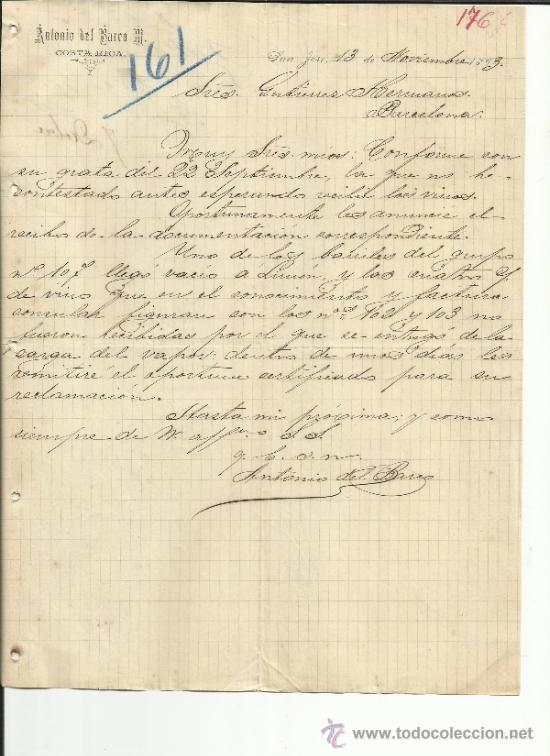 Antonio del Barco M.
COSTA RICA.
161
176
San José, 13 de Noviembre 1893.
Sres. Gutierrez Hermanos.
Barcelona.
Muy Sres mios: Conforme con
su grata del 22 Septiembre, la que no he
contestado antes esperando recibir los vinos.
Oportunamente les anuncie el
recibo de la documentación correspondiente.
Uno de los barriles del grupo
nº 107 llegó vacio á Limon, y las cuatro
de vino que en el conocimiento y factura
consular figuran con los nos 102 y 103 no
fueron recibidas por el que se entregó de la
carga del vapor; dentro de unos dias les
remitiré el oportuno certificado para su
reclamación.
Hasta mi proxima; y como
siempre de W. affmo. S. S.
q. b. s. m.
Antonio del Barco
www.todocoleccion.net